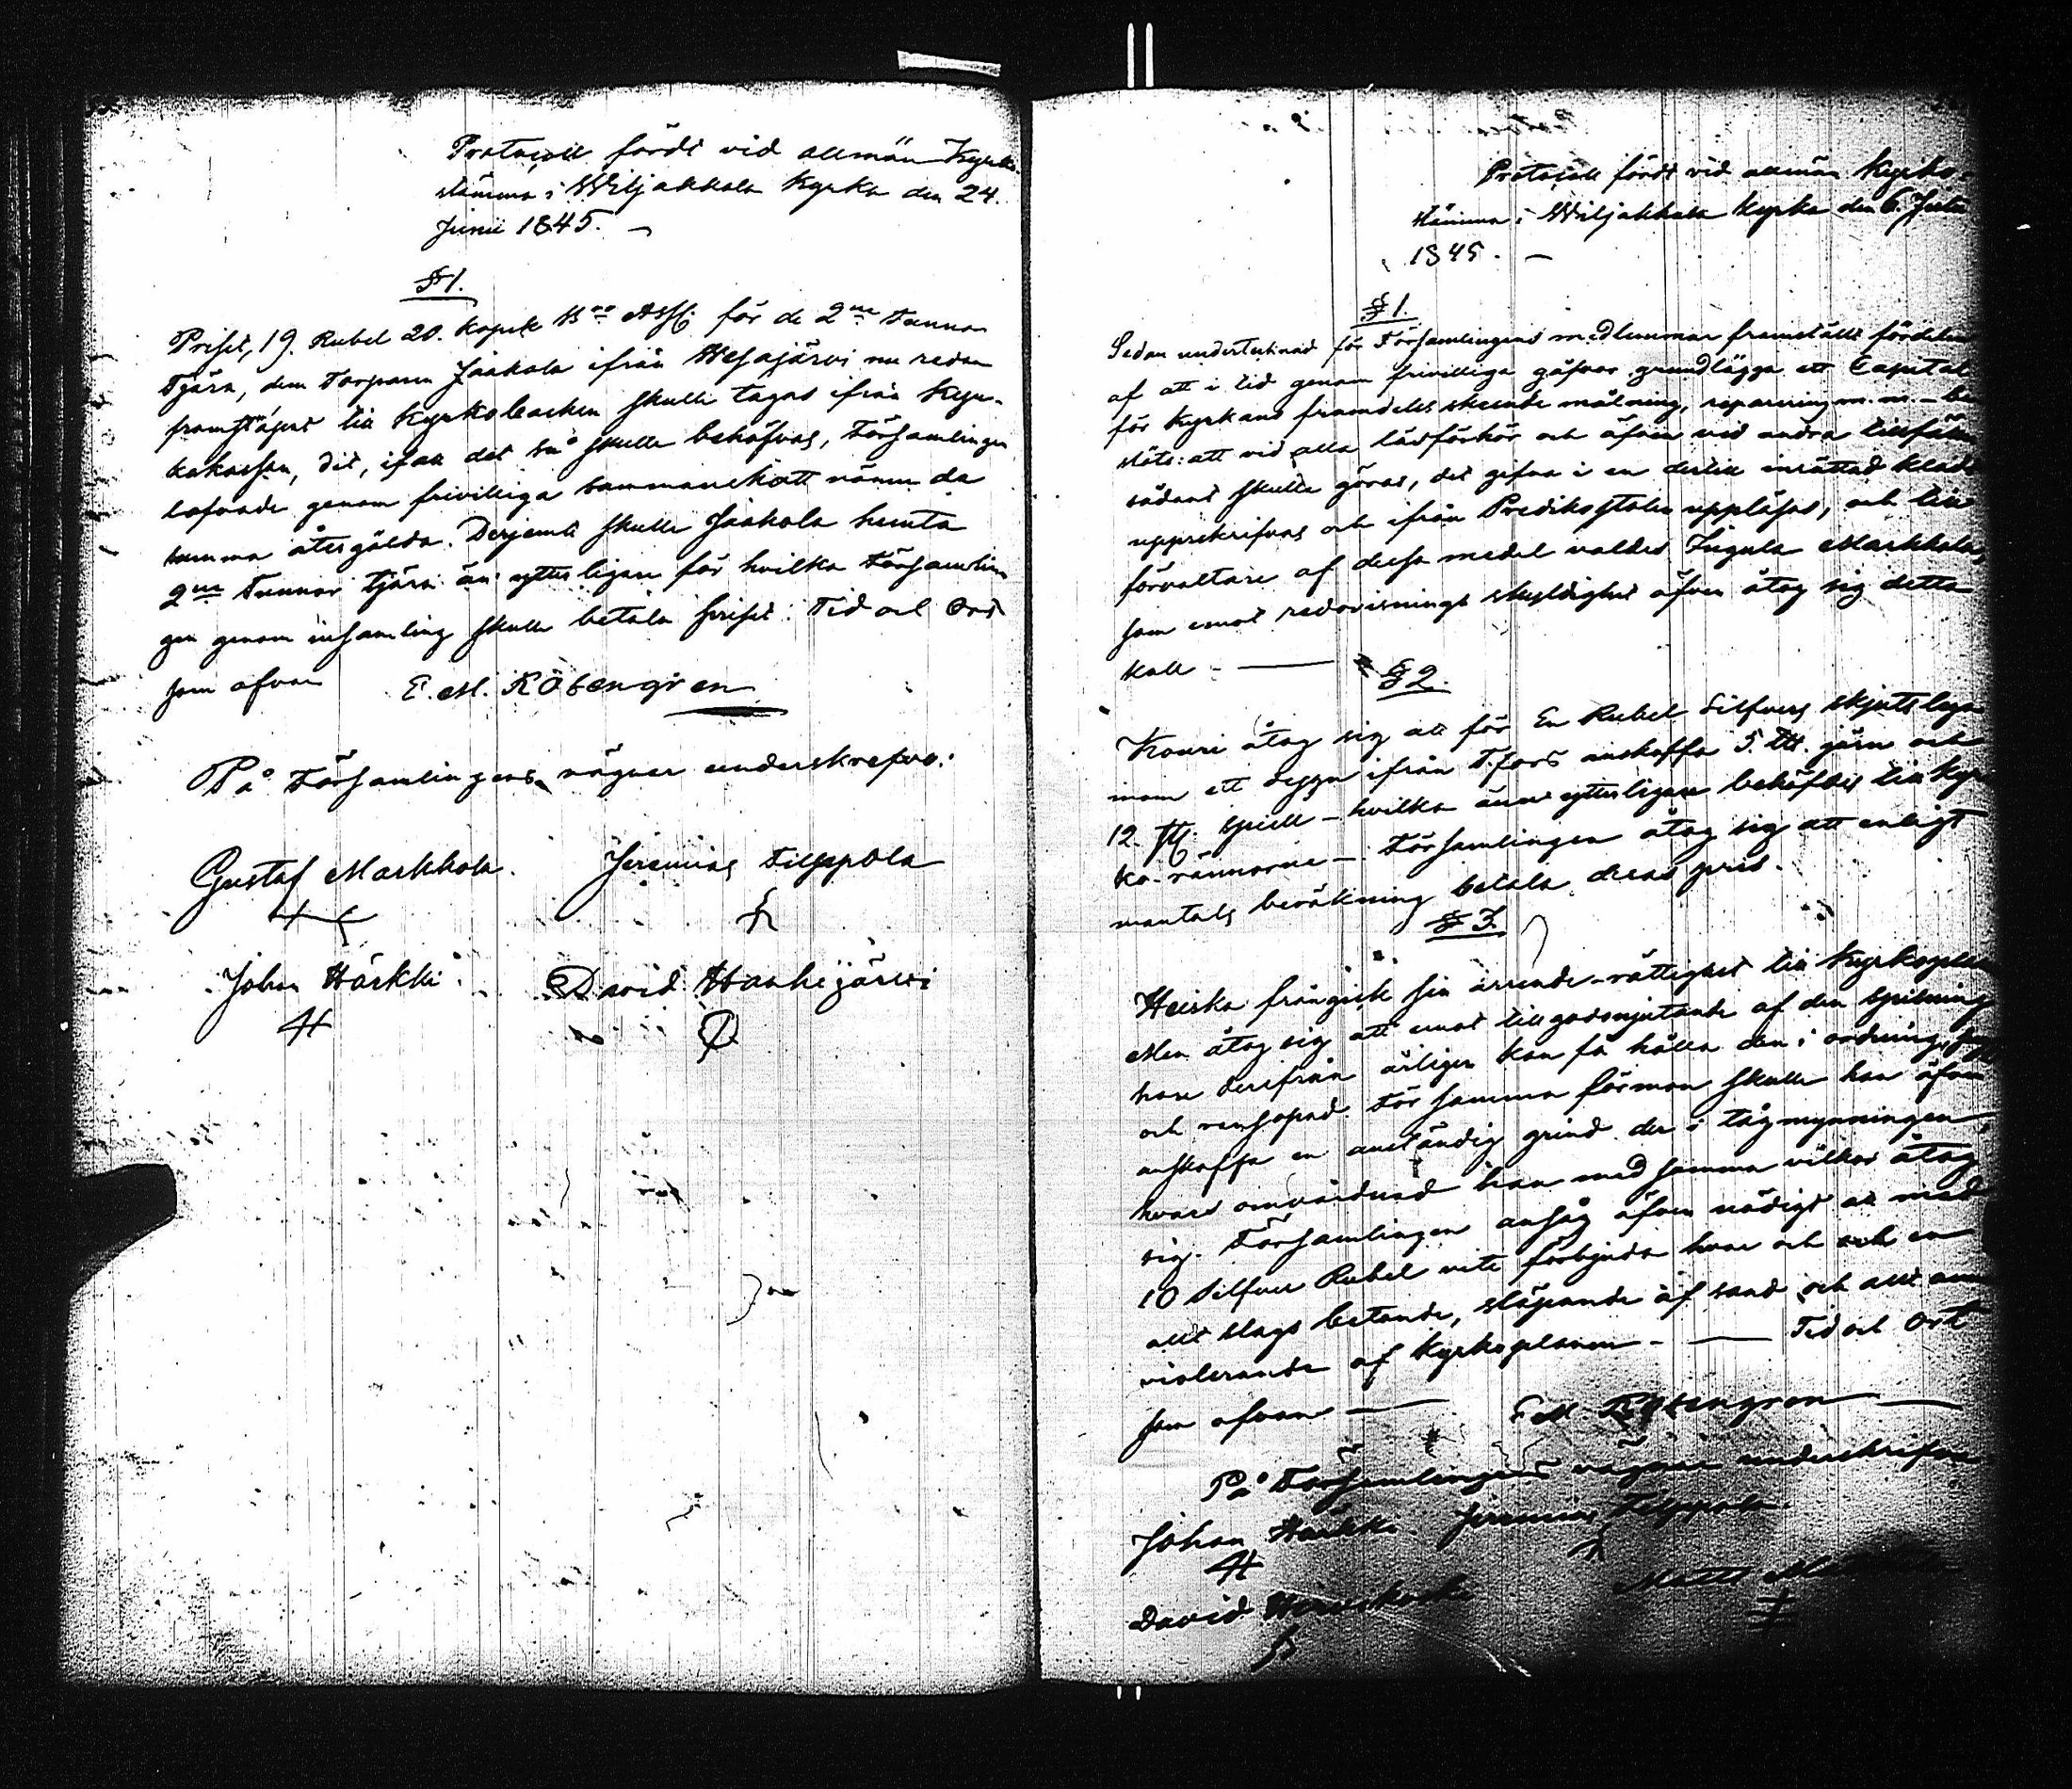 Protocoll fördt vid allmän Kyrko-
stämma i Wiljakkala Kyrka den 24.
Junii 1845. —
§ 1.
Priset, 19. Rubel 20. Kopek B:co Ass. för de 2:ne Tunnor
Tjära, dem Torparen Jaakola ifrån Wesajärvi nu redan
framsläpat till Kyrkobacken skulle tagas ifrån Kyr-
kokassan, dit, ifall det så skulle behöfvas, Församlingen
lofvade genom frivilliga sammanskott nämnda
summa återgälda. Derjemte skulle Jaakola hemta
2:ne Tunnor tjära än ytterligare för hvilka Församlin
gen genom insamling skulle betala priset. Tid och Ort
som ofvan E. M. Rosengren
På Församlingens vägnar underskrefvo:
Gustaf Markkola. Jeremias Filppola
Johan Härkki. David Hanhijärvi
Protocoll fördt vid allmän Kyrko-
stämma i Wiljakkala Kyrka den 6. Julii
1845. —
§ 1.
Sedan undertecknad för Församlingens medlemmar framställt fördelen
af att i tid genom frivilliga gåfvor grundlägga ett Capital
för Kyrkans framdeles skeende målning, reparering m. m. —
slöts: att vid alla läsförhör och äfven vid andra tillfällen
sådant skulle göras, det gifna i en dertill inrättad kladd
uppskrifvas och ifrån Predikostolen uppläsas, och till
förvaltare af dessa medel valdes Ingula Markkola,
som emot redovisnings skyldighet äfven åtog sig detta
kall — § 2.
Kouri åtog sig att för En Rubel Silfvers skjutslega
inom ett dygn ifrån T.fors anskaffa 5. LU. järn och
12. spik — hvilka ännu ytterligare behöfdes till Kyr
ko-rännorne — Församlingen åtog sig att enligt
mantals beräkning betala deras pris.
§ 3.
Heiska frångick sin arrende-rättighet till Kyrkoplan
Men åtog sig att emot tillgodonjutande af den spilning
han derifrån årligen kan få hålla den i ordning,
och rensopad. För samma förmon skulle han äfven
anskaffa en anständig grind der i tågmynningen,
hvars omvårdnad han med samma vilkor åtog
sig. Församlingen ansåg äfven nödigt att med
10 Silfver Rubel vite förbjuda hvar och och en
allt slags betande, släpande af sand och allt ann
violerande af Kyrkoplanen — Tid och Ort
som ofvan — E M Rosengren —
På Församlingens vägnar underskrifva
Johan Härkki Jeremias Filppola
David Matts